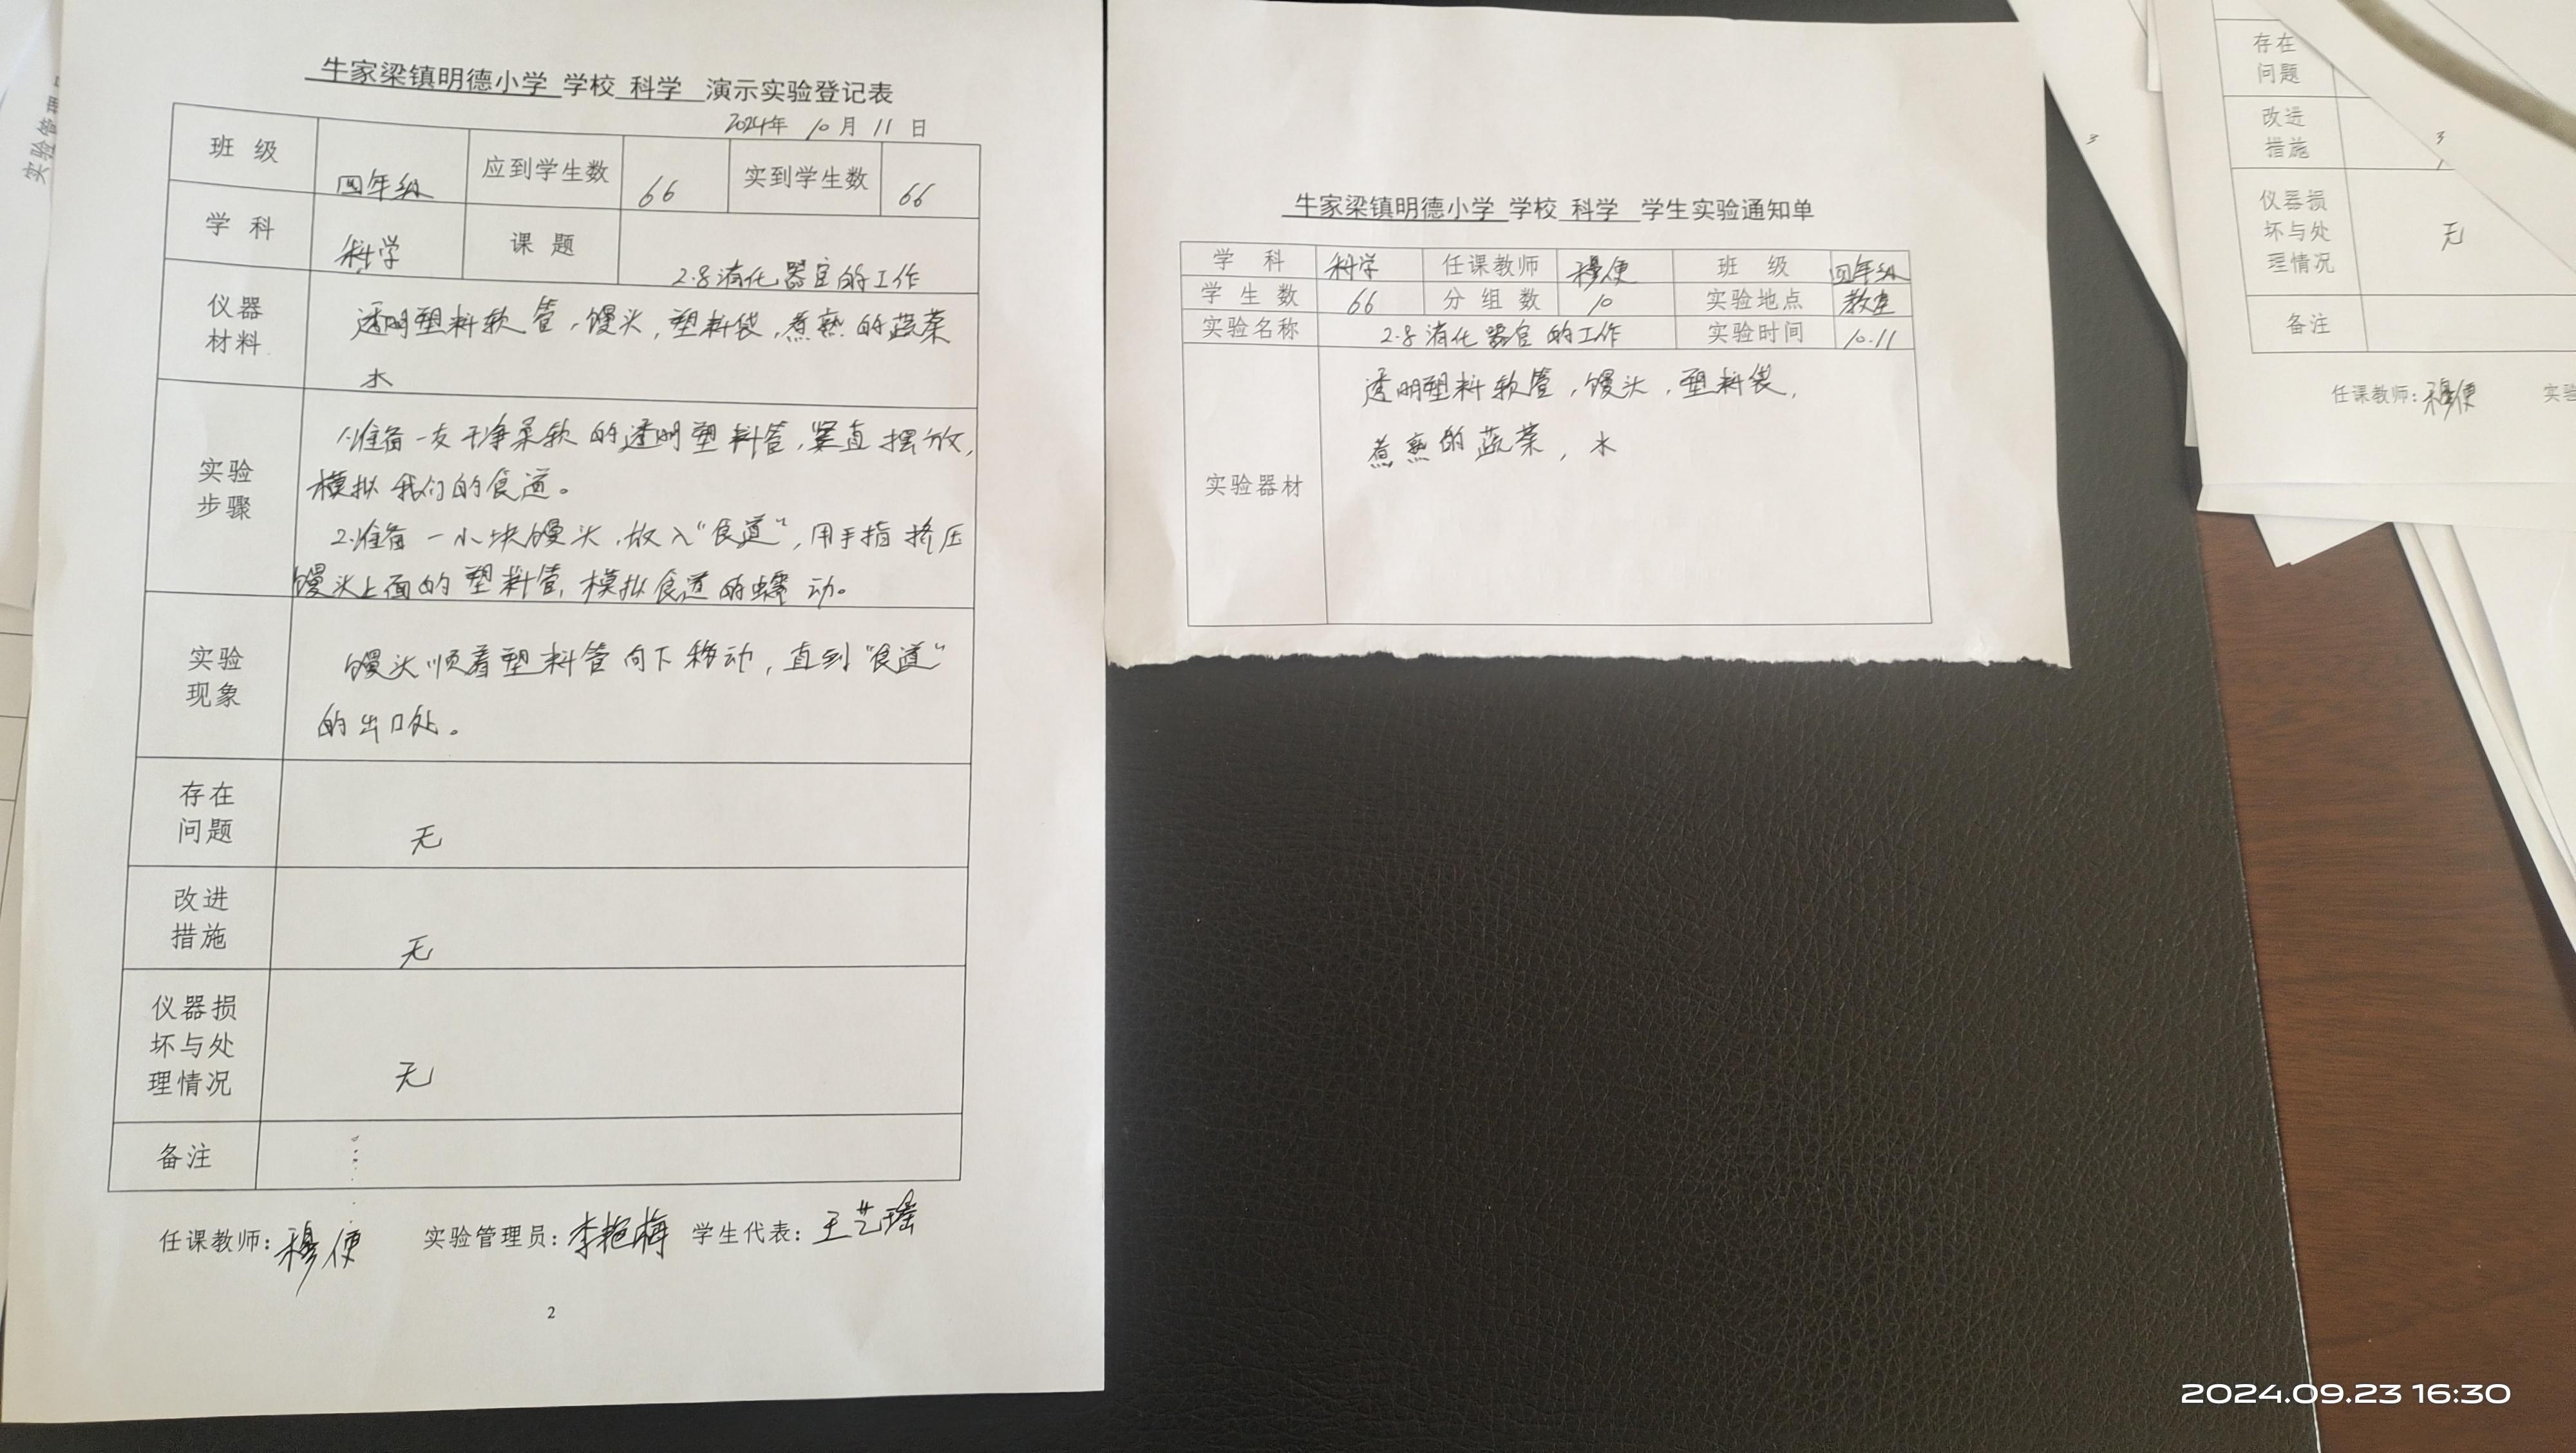 牛家梁镇明德小学 学校 科学 演示实验登记表
2024年 10月 11日
班级 四年级 应到学生数 66 实到学生数 66
学科 科学 课题 2.8消化器官的工作
仪器材料 透明塑料软管,馒头,塑料袋,煮熟的蔬菜
水
实验步骤
1.准备一支干净柔软的透明塑料管,竖直摆放,
模拟我们的食道。
2.准备一小块馒头,放入“食道”,用手指挤压
馒头上面的塑料管,模拟食道的蠕动。
实验现象
馒头顺着塑料管向下移动,直到“食道”
的出口处。
存在问题 无
改进措施 无
仪器损坏与处理情况 无
备注
任课教师:穆便 实验管理员:李艳梅 学生代表:王艺瑶
2
牛家梁镇明德小学 学校 科学 学生实验通知单
学科 科学 任课教师 穆便 班级 四年级
学生数 66 分组数 10 实验地点 教室
实验名称 2.8消化器官的工作 实验时间 10.11
实验器材
透明塑料软管,馒头,塑料袋,
煮熟的蔬菜,水
存在问题
改进措施
仪器损坏与处理情况 无
备注
任课教师:穆便 实验
3
2024.09.23 16:30